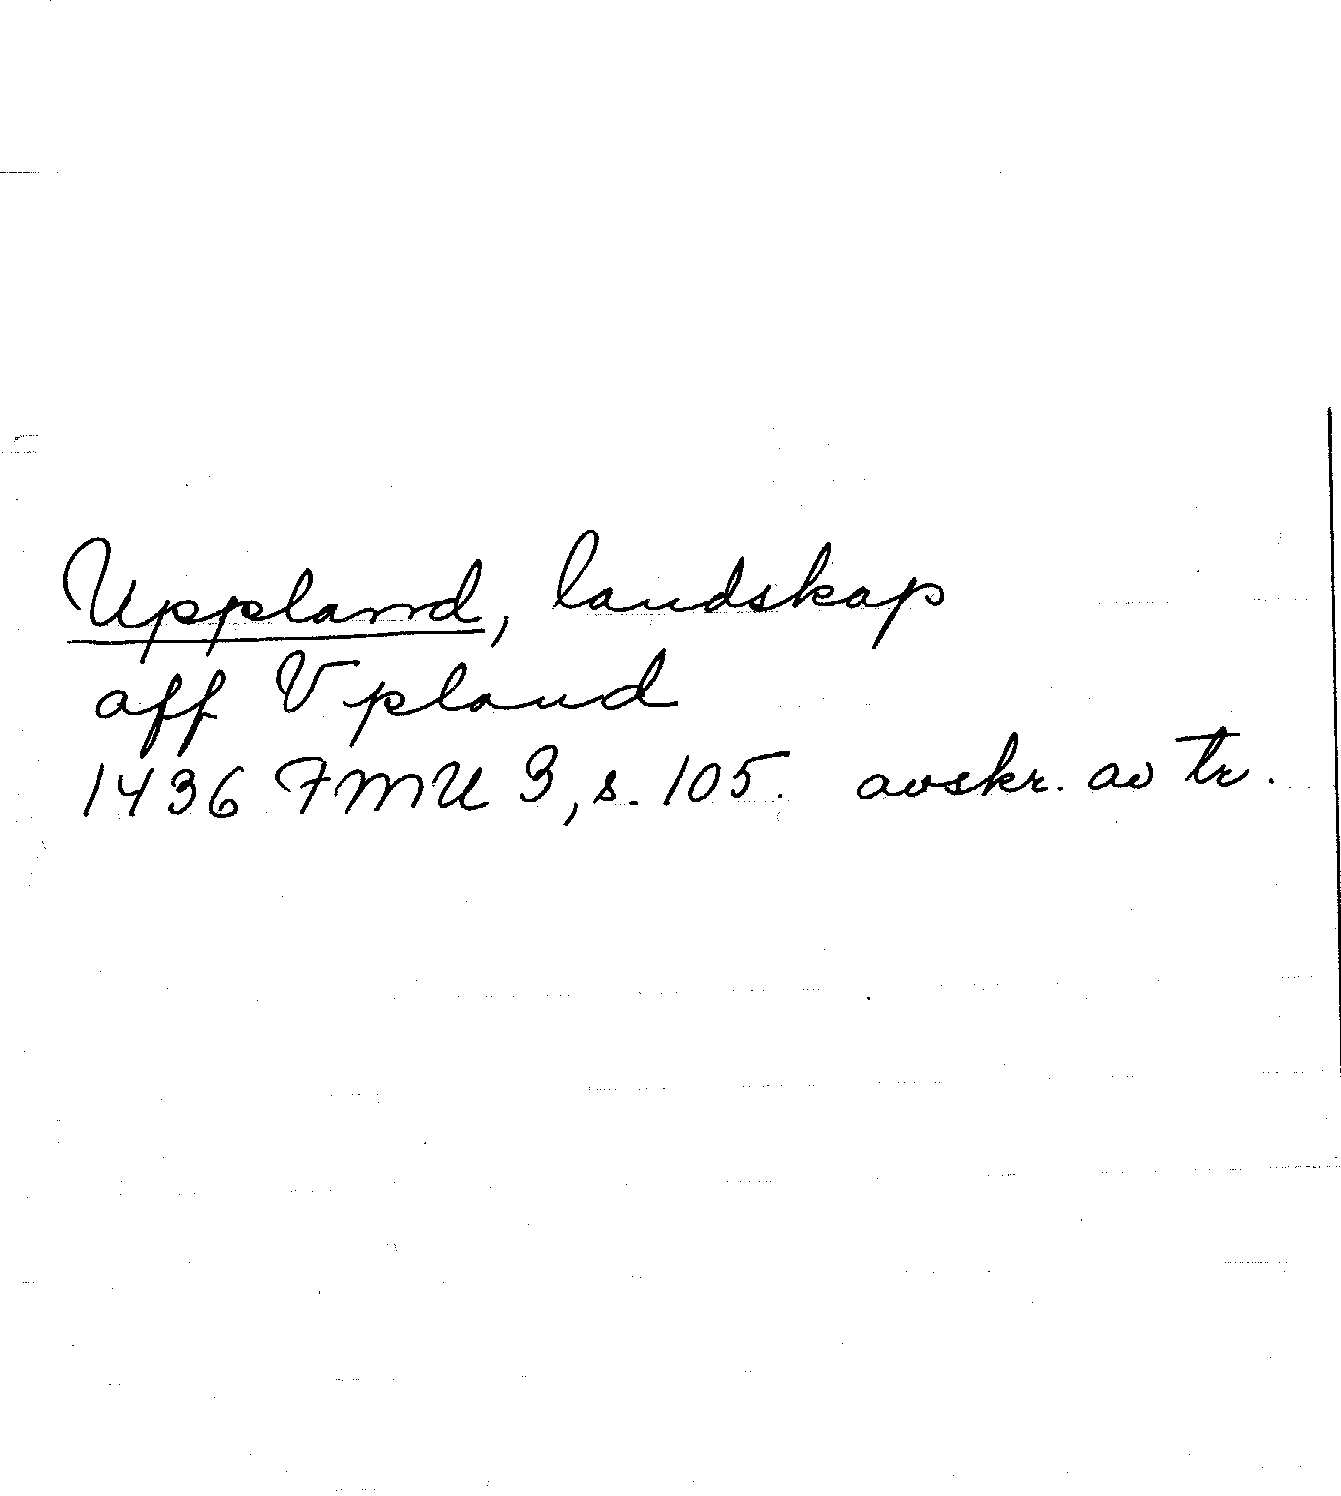 Uppland, landskap
aff Vpland
1436 FMU 3, s. 105. avskr. av tr.